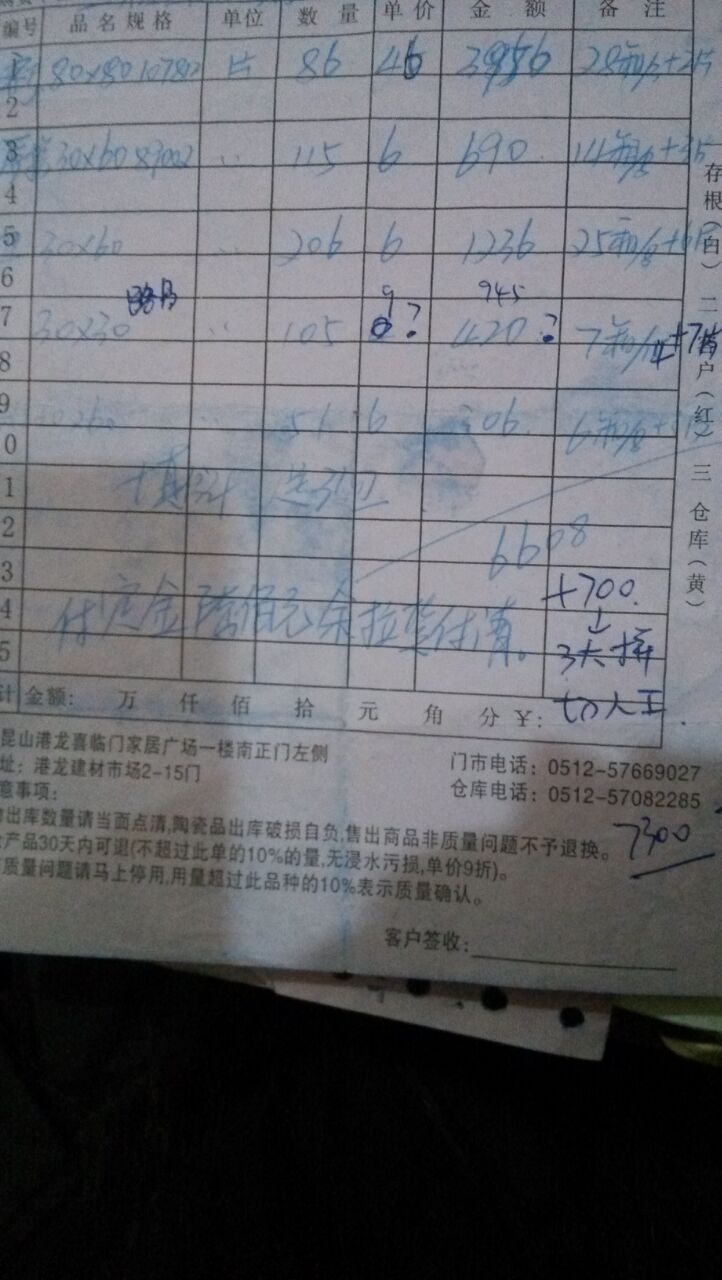 编号 品名规格 单位 数量 单价 金额 备注
80×80 10782 片 86 46 3956 28箱/3+2片
2
3 30×60 83002 115 6 690 14箱/8+3片
4
5 30×60 206 6 1236 25箱/8+6片
6
9 945
7 30×30 105 ? 420? 7箱/14+7片
8
9 30×60 51 6 306 6箱/8
0
1
2 6608
3 +700
4 付定金 佰元余拉货付清。
5 3夫拼
切人工
计金额: 万 仟 佰 拾 元 角 分 ¥:
存根(白) 二 户(红) 三 仓库(黄)
昆山港龙喜临门家居广场一楼南正门左侧
址：港龙建材市场2-15门
门市电话：0512-57669027
仓库电话：0512-57082285
意事项：
出库数量请当面点清,陶瓷品出库破损自负,售出商品非质量问题不予退换。
产品30天内可退(不超过此单的10%的量,无浸水污损,单价9折)。
质量问题请马上停用,用量超过此品种的10%表示质量确认。
7300
客户签收: